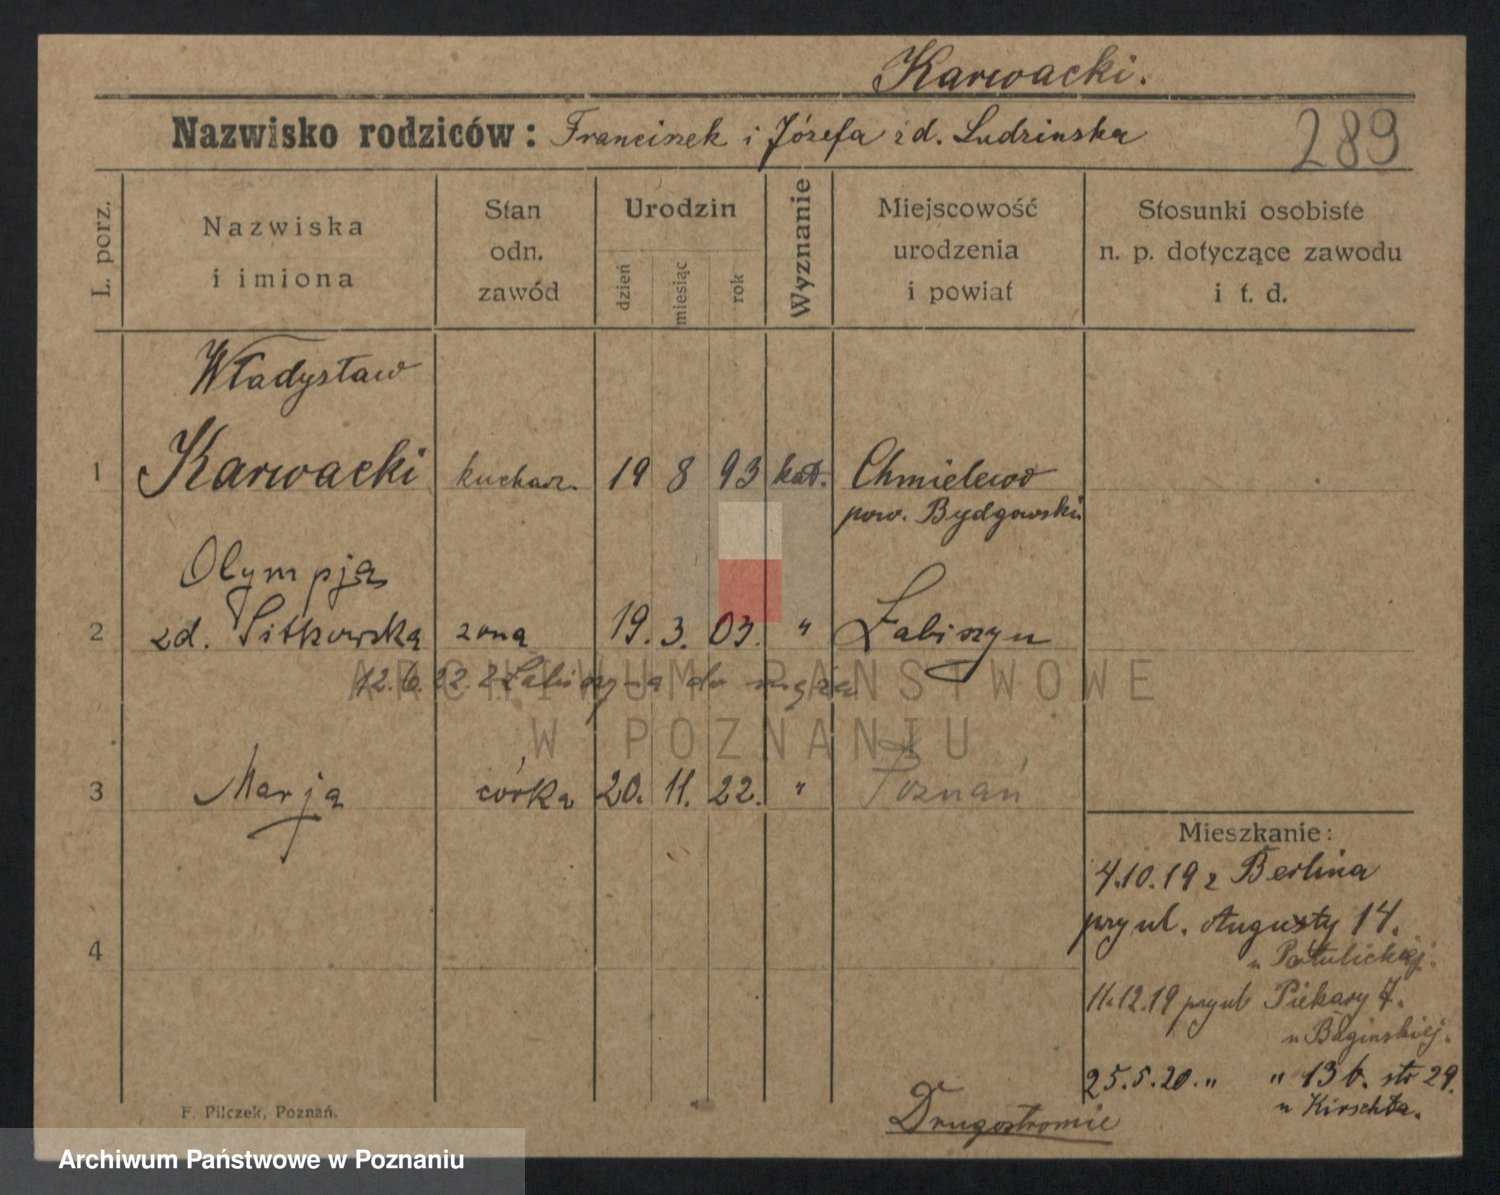 Karwacki.
Nazwisko rodziców: Franciszek i Józefa zd. Ludzinska
289
L. porz.
Nazwiska i imiona
Stan odn. zawód
Urodzin
dzień
miesiąc
rok
Wyznanie
Miejscowość urodzenia i powiat
Stosunki osobiste n. p. dotyczące zawodu i t. d.
Władysław
1 Karwacki kucharz. 19 8 93 kat. Chmielewo
pow. Bydgowski
Olympja
2 zd. Sitkowska zona 19. 3. 03. " Łabiszyn
12.6.22. z Łabiszyna do męża
3 Marja córka 20. 11. 22. " Poznań
Mieszkanie:
4.10.19 z Berlina
przy ul. Augusty 14.
u Potulickiej.
4
11.12.19 przy ul Piekary 7.
u Baginskiej.
25.5.20. " " 13 b. str 29.
u Kirschta.
Drugostronnie
F. Pilczek, Poznań.
ARCHIWUM PAŃSTWOWE
W POZNANIU
Archiwum Państwowe w Poznaniu